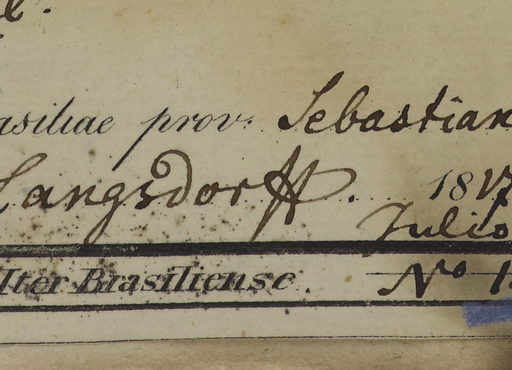 asiliae prov. Sebastian
Langsdorff. 18
Julio
Iter Brasiliense. No 1